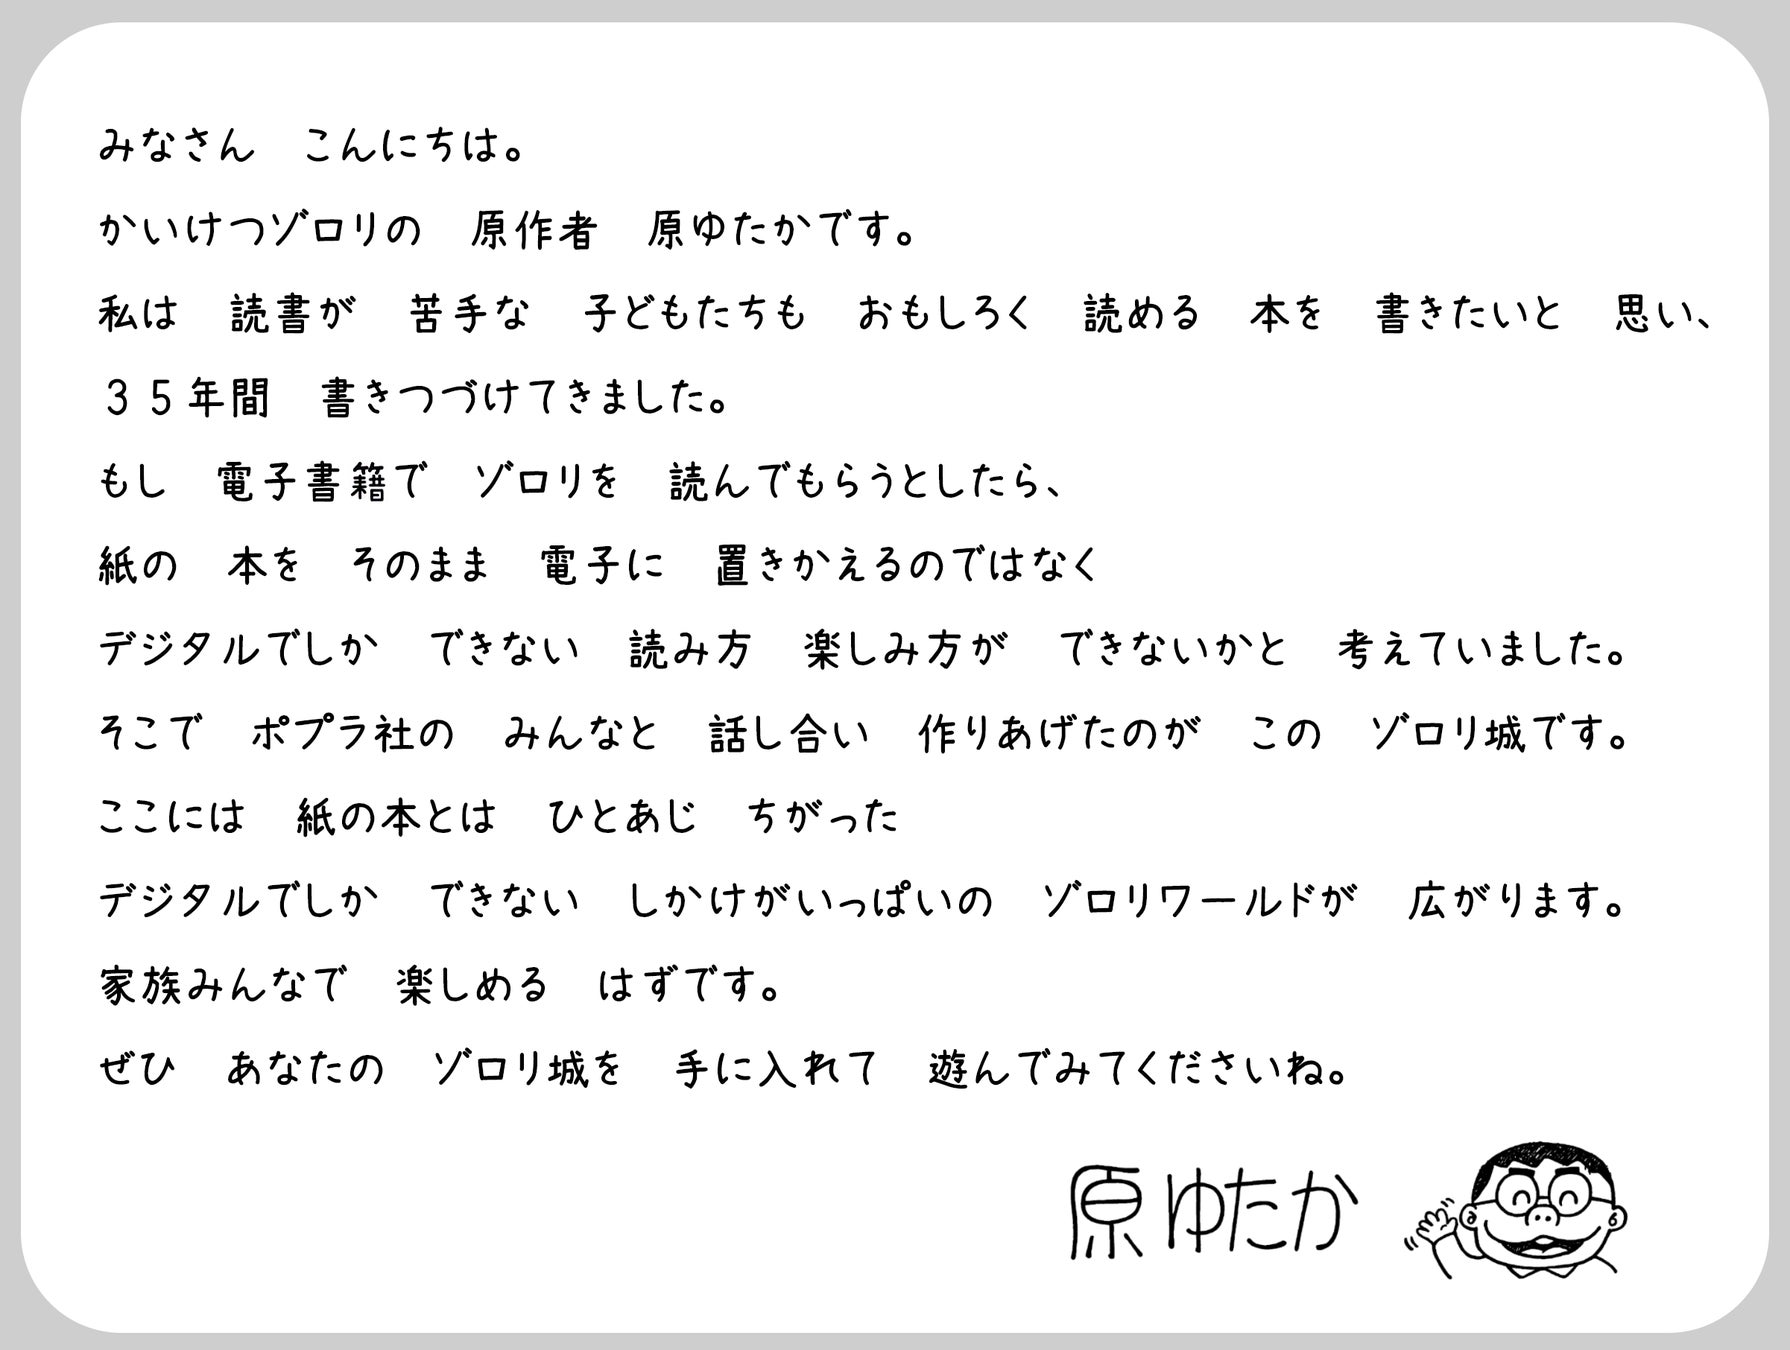 みなさん　こんにちは。
かいけつゾロリの　原作者　原ゆたかです。
私は　読書が　苦手な　子どもたちも　おもしろく　読める　本を　書きたいと　思い、
３５年間　書きつづけてきました。
もし　電子書籍で　ゾロリを　読んでもらうとしたら、
紙の　本を　そのまま　電子に　置きかえるのではなく
デジタルでしか　できない　読み方　楽しみ方が　できないかと　考えていました。
そこで　ポプラ社の　みんなと　話し合い　作りあげたのが　この　ゾロリ城です。
ここには　紙の本とは　ひとあじ　ちがった
デジタルでしか　できない　しかけがいっぱいの　ゾロリワールドが　広がります。
家族みんなで　楽しめる　はずです。
ぜひ　あなたの　ゾロリ城を　手に入れて　遊んでみてくださいね。
原ゆたか